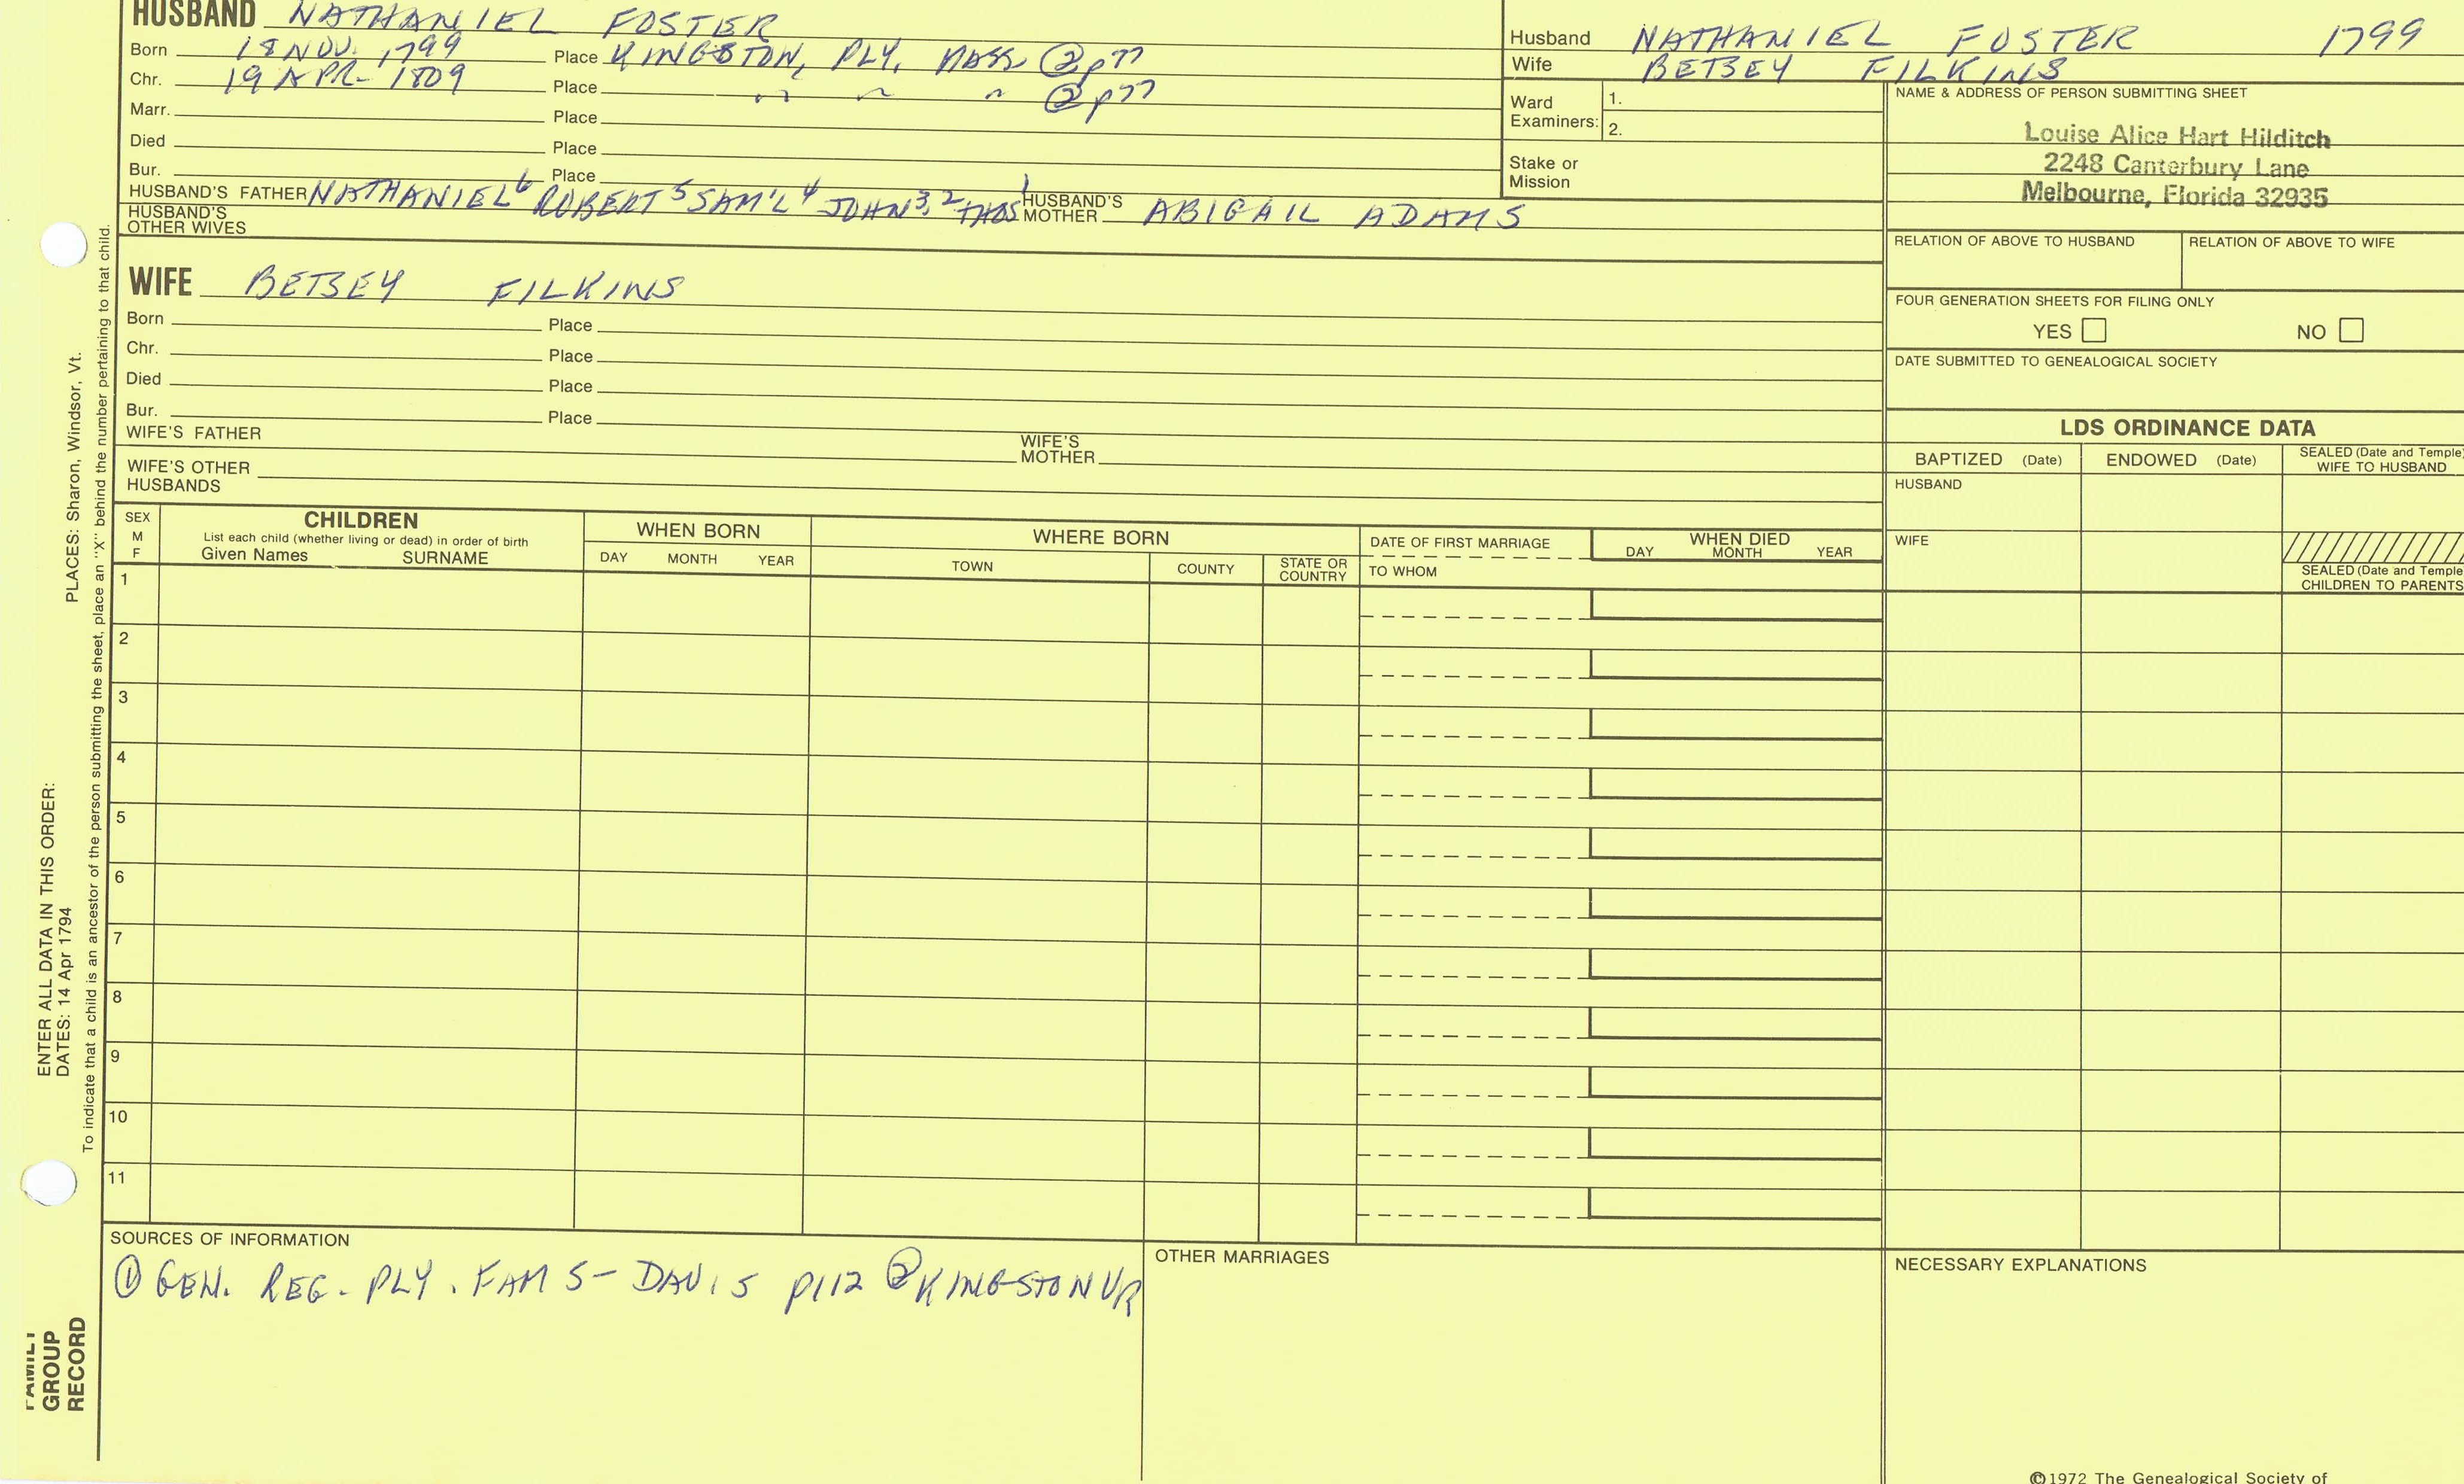 HUSBAND NATHANIEL FOSTER
Born 18 NOV. 1799 Place KINGSTON, PLY, MASS ② p77
Chr. 19 APR- 1809 Place " " " ② p77
Marr. Place
Died Place
Bur. Place
HUSBAND'S FATHER NATHANIEL⁶ ROBERT⁵ SAM'L⁴ JOHN³,² THOS¹ HUSBAND'S MOTHER ABIGAIL ADAMS
HUSBAND'S OTHER WIVES
WIFE BETSEY FILKINS
Born Place
Chr. Place
Died Place
Bur. Place
WIFE'S FATHER WIFE'S MOTHER
WIFE'S OTHER HUSBANDS
Husband NATHANIEL FOSTER 1799
Wife BETSEY FILKINS
Ward Examiners: 1.
2.
Stake or Mission
NAME & ADDRESS OF PERSON SUBMITTING SHEET
Louise Alice Hart Hilditch
2248 Canterbury Lane
Melbourne, Florida 32935
RELATION OF ABOVE TO HUSBAND RELATION OF ABOVE TO WIFE
FOUR GENERATION SHEETS FOR FILING ONLY
YES NO
DATE SUBMITTED TO GENEALOGICAL SOCIETY
LDS ORDINANCE DATA
BAPTIZED (Date) ENDOWED (Date) SEALED (Date and Temple) WIFE TO HUSBAND
HUSBAND
WIFE
SEALED (Date and Temple
CHILDREN TO PARENTS
SEX M F
CHILDREN
List each child (whether living or dead) in order of birth
Given Names SURNAME
WHEN BORN
DAY MONTH YEAR
WHERE BORN
TOWN COUNTY STATE OR COUNTRY
DATE OF FIRST MARRIAGE
TO WHOM
WHEN DIED
DAY MONTH YEAR
1
2
3
4
5
6
7
8
9
10
11
SOURCES OF INFORMATION
① GEN. REG. PLY. FAMS - DAVIS p112 ② KINGSTON VR
OTHER MARRIAGES
NECESSARY EXPLANATIONS
©1972 The Genealogical Society of
PLACES: Sharon, Windsor, Vt.
To indicate that a child is an ancestor of the person submitting the sheet, place an "X" behind the number pertaining to that child.
ENTER ALL DATA IN THIS ORDER:
DATES: 14 Apr 1794
FAMILY
GROUP
RECORD